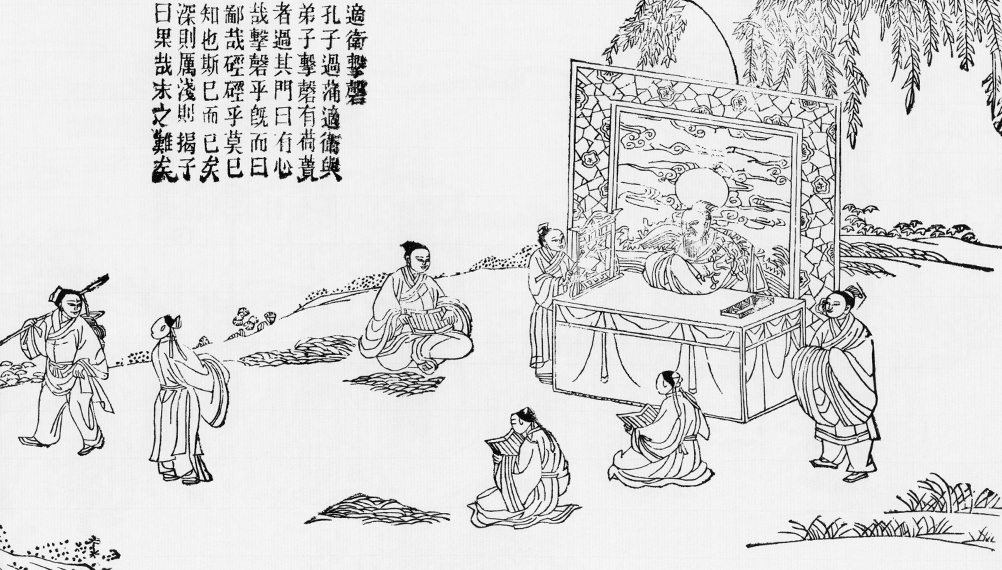 適衛擊磬
孔子過蒲適衛與
弟子擊磬有荷蕢
者過其門曰有心
哉擊磬乎旣而曰
鄙哉硜硜乎莫己
知也斯已而已矣
深則厲淺則揭子
曰果哉末之難矣